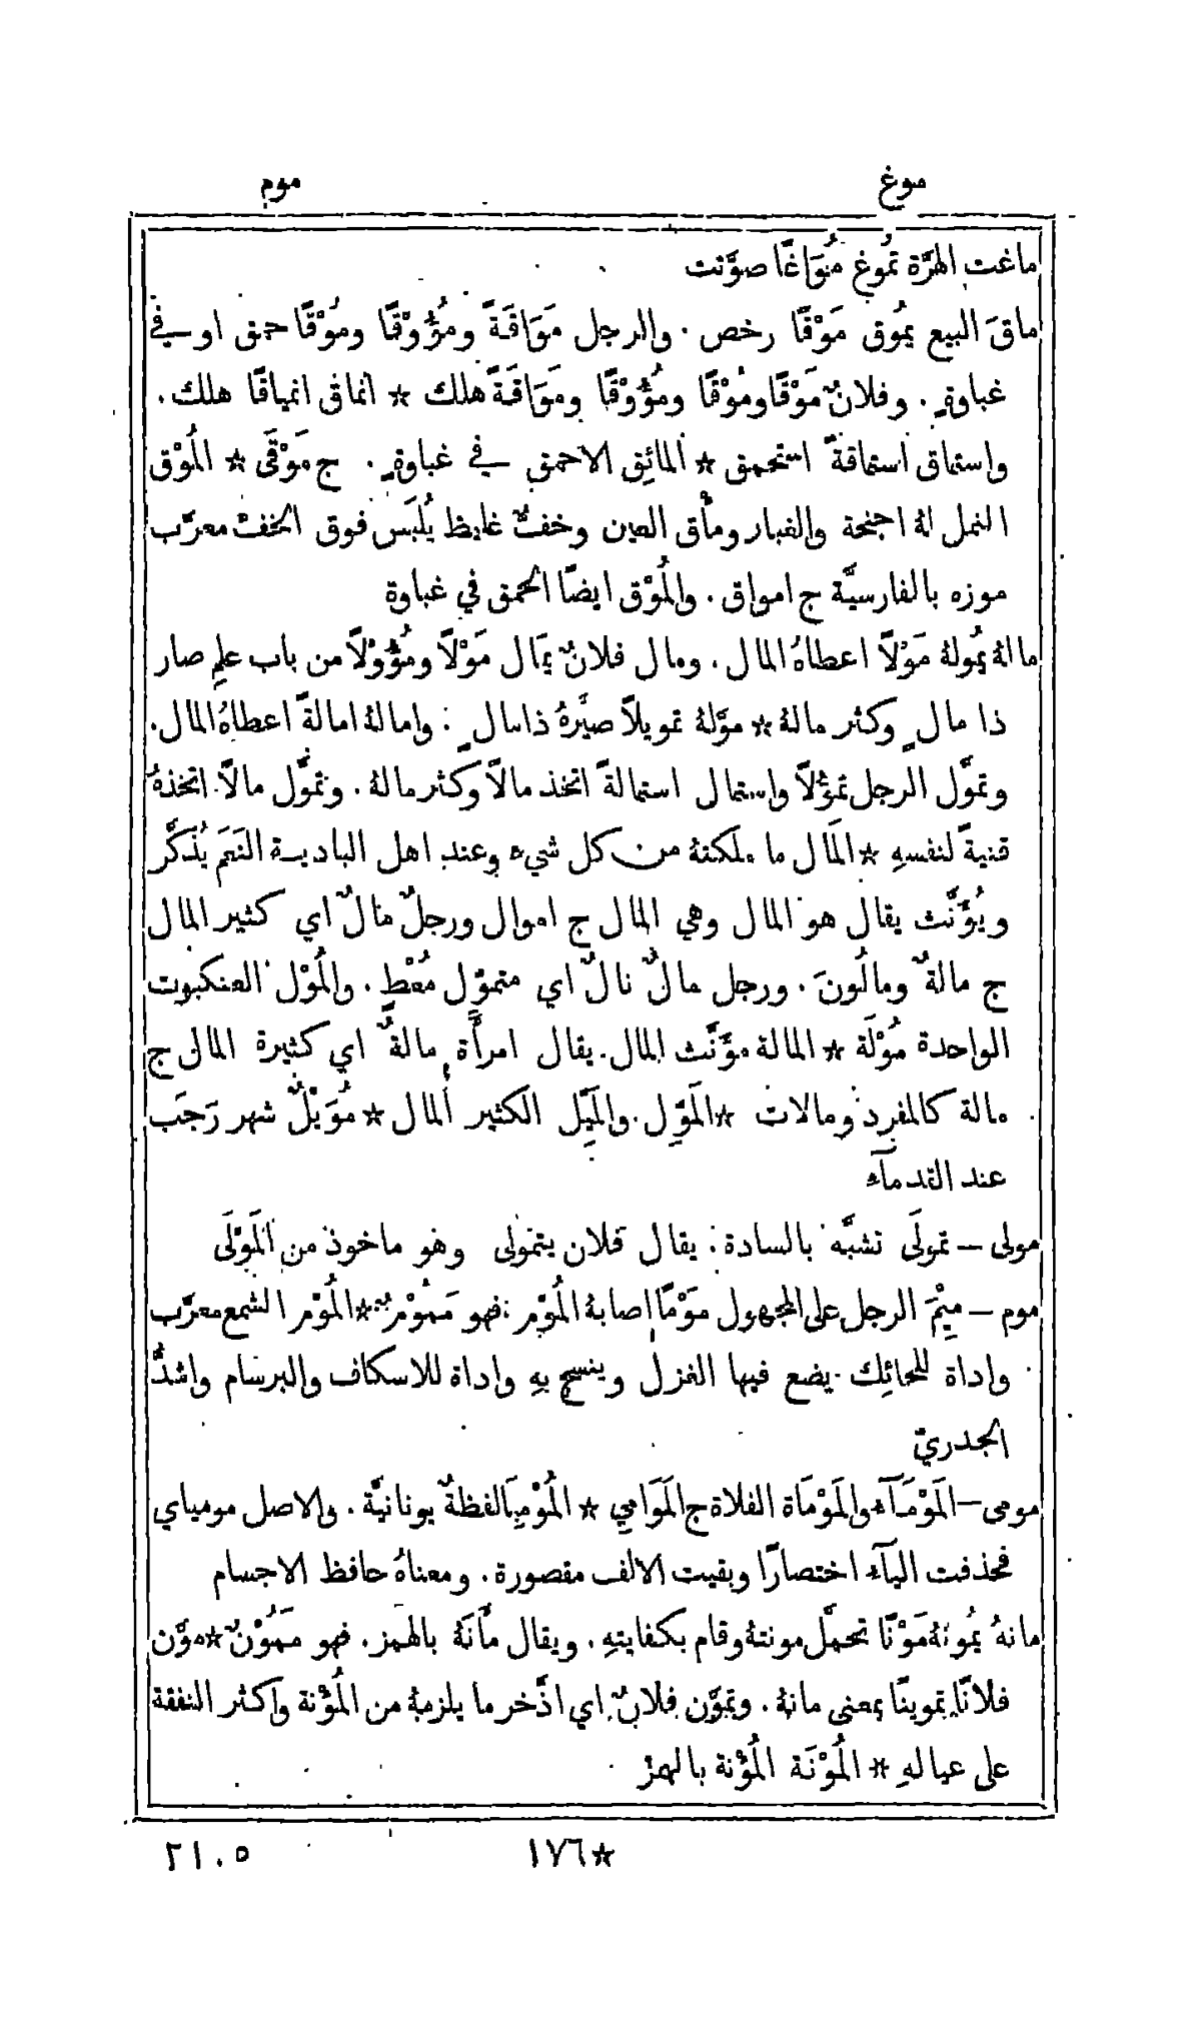 موغ موم
ماغت الهرَّة تمُوغ مُوَاغًا صوَّتت
ماقَ البيع يمُوق مَوْقًا رخص . والرجل مَوَاقَةً ومُؤُوْقًا ومُوْقًا حمق او في
غباوةٍ . وفلانٌ مَوْقًا ومُوْقًا ومُؤُوْقًا ومَوَاقَةً هلك * انماق انمياقًا هلك .
واستماق استماقةً استحمق * المائِق الاحمق في غباوةٍ . ج مَوْقَى * المُوْق
النمل لهُ اجنحة والغبار ومأْق العين وخفٌّ غليظ يُلبَس فوق الخفّ معرَّب
موزه بالفارسيَّة ج امواق . والمُوْق ايضًا الحمق في غباوة
مالهُ يمُولهُ مَوْلًا اعطاهُ المال . ومال فلانٌ يمَال مَوْلًا ومُؤُوْلًا من باب علِم صار
ذا مالٍ وكثر مالهُ * موَّلهُ تمويلًا صيَّرهُ ذا مالٍ . وامالهُ امالةً اعطاهُ المال .
وتموَّل الرجل تموُّلًا واستمال استمالةً اتخذ مالًا وكثر مالهُ . وتموَّل مالًا اتخذهُ
قنيةً لنفسهِ * المَال ما ملكتهُ من كل شيء وعند اهل البادية النَعَم يُذَكَّر
ويُؤَنَّث يقال هو المال وهي المال ج اموال ورجلٌ مَالٌ اي كثير المال
ج مالةٌ ومالُونَ . ورجل مالٌ نالٌ اي متموّل مُعْطٍ . والمُوْل العنكبوت
الواحدة مُوْلَة * المالة مؤَنَّث المال . يقال امرأَة مالةٌ اي كثيرة المال ج
مالة كالمفرد ومالات * المَوِّل . والمَيِّل الكثير المال * مُوَيْلٌ شهر رَجَب
عند القدمآء
مولى – تمولَى تشبَّه بالسادة . يقال فلان يتمولى وهو ماخوذ من المَوْلَى
موم – مِيْمَ الرجل على المجهول مَوْمًا اصابهُ المُوْم فهو مَمُوْمٌ * المُوْم الشمع معرَّب
واداة للحائِك يضع فيها الغزل وينسج بهِ واداة للاسكاف والبرسام واشدُّ
الجدريّ
مومى – المَوْمَآء والمَوْمَاة الفلاة ج المَوَامِي * المُوْمِيَا لفظةٌ يونانيَّة . والاصل مومياي
فحذفت اليآء اختصارًا وبقيت الالف مقصورة . ومعناهُ حافظ الاجسام
مانهُ يمُونهُ مَوْنًا تحمَّل مونتهُ وقام بكفايتهِ . ويقال مأَنَهُ بالهمز . فهو مَمُوْنٌ * موَّن
فلانًا تموينًا بمعنى مانهُ . وتموَّن فلانٌ اي ادَّخر ما يلزمهُ من المُؤْنة واكثر النفقة
على عيالهِ * المُوْنَة المُؤْنة بالهمز
٢١٠٥ *١٧٦